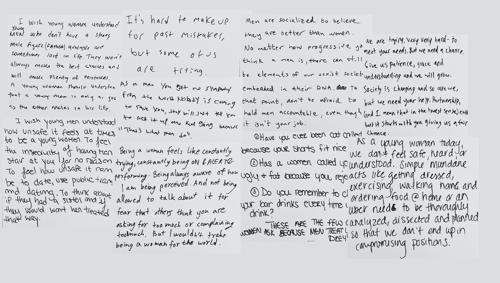 I wish young women understood
young men who don't have a strong
male figure (father) amongst are
sometimes lost in life. They won't
always make the best choices and
will make plenty of mistakes.
A young woman should understand
that a young man is only as good
as the other males in his life.
I wish young men understood
how unsafe it feels at times
to be a young women. To feel
the insecurity of having men
stare at you for no reason
To feel how unsafe it can
be to date, use public trans
and dating. To think about
if they had a sister and if
they would want her treated
that way.
It's hard to make up
for past mistakes,
but some of us
are trying.
As a man you get no sympathy
from the world. Nobody is coming
to save you, you will just tell you
to suck it up and keep going because
"That's what men do".
Being a woman feels like constantly
trying, constantly being on & ALWAYS
performing. Being always aware of how
I am being perceived. And not being
allowed to talk about it for
fear that others think you are
asking for too much or complaining
too much, but I wouldn't trade
being a woman for the world.
Men are socialized to believe
they are better than women.
No matter how progressive you
think a man is, there can still
be elements of our sexist society
embedded in their DNA. To
that point, don't be afraid to
hold men accountable, even though
it isn't your job.
① Have you ever been cat called
because your shorts fit nice
② Has a women called you
ugly & fat because you reject
③ Do you remember to c
your bar drinks every time y
drink?
THESE ARE THE FEW
WOMEN ASK BECAUSE MEN TREAT
we are trying. Very very hard to
meet your needs. But we need a chance.
Give us patience, grace and
understanding and we will grow.
Society is changing and so are we,
but we need your help. Partnership,
and I mean that in the honest sense,
but it starts with you giving us a
chance.
As a young woman today,
we don't feel safe, heard or
understood. Simple mundane
acts like getting dressed,
exercising, walking home and
ordering food @ home or an
uber needs to be thoroughly
analyzed, dissected and planned
so that we don't end up in
compromising positions.